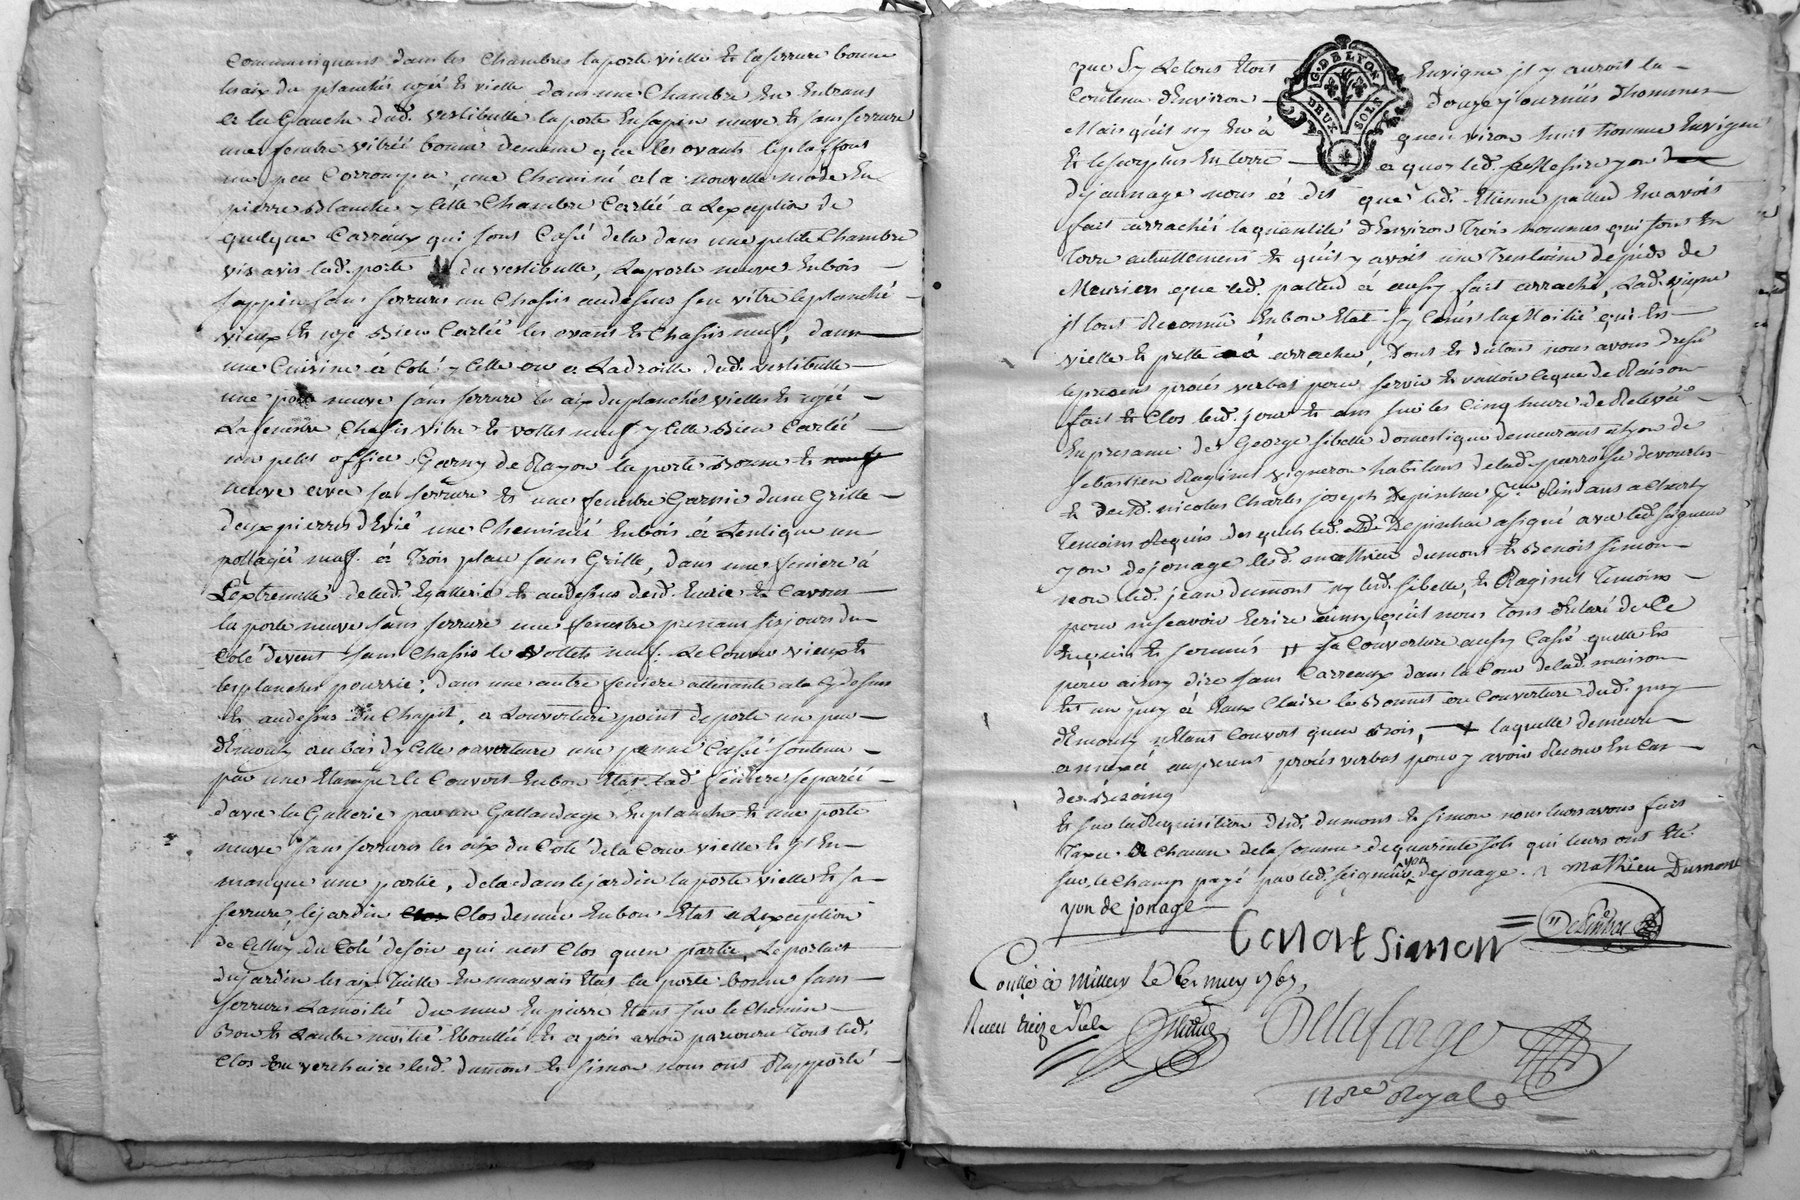 Communiquant dans les Chambres la porte vielle et la serrure bonne
les aix du planchés usé et vielle dans une Chambre En Entrant
a la Gauche dud. vestibulle la porte En sapin neuve et sans serrure
une fenetre vitréé bonne de meme que les ovants le plaffont
un peu Corrompu, une Cheminé a la nouvelle mode En
pierre Blanche y Celle Chambre Carléé a Lexception de
quelque Carreaux qui sont Cassé de la dans une petite Chambre
vis avis lad. porte du vestibulle, La porte neuve En bois
sappin sans serrure un Chassis au dessus sen vitre le planché
vieux et usé Bien Carléé les ovants et Chassis neuf, dans
une Cuisine a Coté y Celle ou a La droitte dud. vestibulle
une porte neuve sans serrure les aix du planchés vielles et uséé
La fenestre Chassis vitre et vollets neuf y Celle Bien Carléé
un petit office Garny de Rayon la porte Bonne et
neuve avec sa serrure et une fenetre Garnie dune Grille
deux pierres dEvié une Cheminéé En bois a Lentique un
pottagé neuf a Trois plau sans Grille, dans une feniere à
Lextremitté de lad. Gallerie et au dessus desd. Ecurie et Cavour
la porte neuve sans serrure une fenestre prenant ses jours du
Coté de vent sans Chassis le vollets neuf. Le Couvert vieux et
les planches pourrie; dans une autre feniere attenante a la Cy dessus
et au dessus du Chapit, a Louverture point de porte un peu
démonty au bas dy Celle ouverture une panne Cassé soutenu
par une Etampe le Couvert En bon Etat lad. feniere separéé
davec la Gallerie par un Gallandage En planche et une porte
neuve sans serrure les aix du Coté de la Cour vielle et y En
manque une partie, de la dans le jardin la porte vielle et sa
serrure, le jardin Clos de mur En bon Etat a Lexception
de Celluy du Coté de soir qui nest Clos quen partie, Le portail
du jardin les aix Taille En mauvais Etat la porte bonne sans
serrure La moitié du mur En pierre Etant sur le Chemin
Bon et Lautre moitié Eboulléé et apres avoir parcouru tous led.
Clos En verchaire lesd. dumont et simon nous ont Rapporté
que sy Le tous Etois En vigne il y auroit la
Contenu dEnviron douze journéés dhommes
Mais quil ny En à quen viron huit homme En vigne
Et le surplus En terre a quoy led. Messire yon
de jaunage nous a dit que led. Etienne pallud En avois
fait arrachéé la quantité dEnviron Trois hommes qui sont En
terre actuellement et quil y avois une Trentaine de pieds de
Meuriers que led. pallud a aussy fait arraché, Lad. vigne
jl lont Reconnu En bon Etat sy Ce nés la Moitié qui Est
vielle et prette a arraché. Dont et du tout nous avons dressé
le present procés verbal pour servir et valloir ce que de Raison
fait et Clos lesd. jour et ans sur les Cinq heure de Relevéé
En presence de George sibelle domestique demeurant a Lyon de
sebastien Raginet vigneron habitans de lad. parroisse de vourles
et de sr. nicolas Charles joseph Depinchu Resident a Charly
temoins Requis desquels led. sr. Depinchu a signé avec led. seigneur
yon de jonage lesd. mathieu dumont et Benoit simon
non led. jean dumont ny led. sibelle, et Raginet Temoins
pour ne scavoir Ecrire ainsy quil nous lont declaré de Ce
Enquis et sommés sa Couverture aussy Cassé quelle Est
pour ainsy dire sans Carreaux dans la Cour de lad. maison
Est un puy à Eaux Claire le Bonnet ou Couverture dud. puy
démonty nEtant Couvert quen Bois, laquelle demeure
annexéé au present procés verbal pour y avoir Recour En Cas
de Bezoing
Et sur la Requisition desd. dumont et simon nous leurs avons fait
Taxe a Chacun de la somme de quarante sols qui leurs ont Eté
sur le Champ payé par led. seigneur yon de jonage. mathieu Dumont
yon de jonage
Benoit Simon
G. DE LYON
DEUX SOLS
Conllé à Millery Le 6e may 1767,
Recu treize sols
Delafarge
Nore Royal